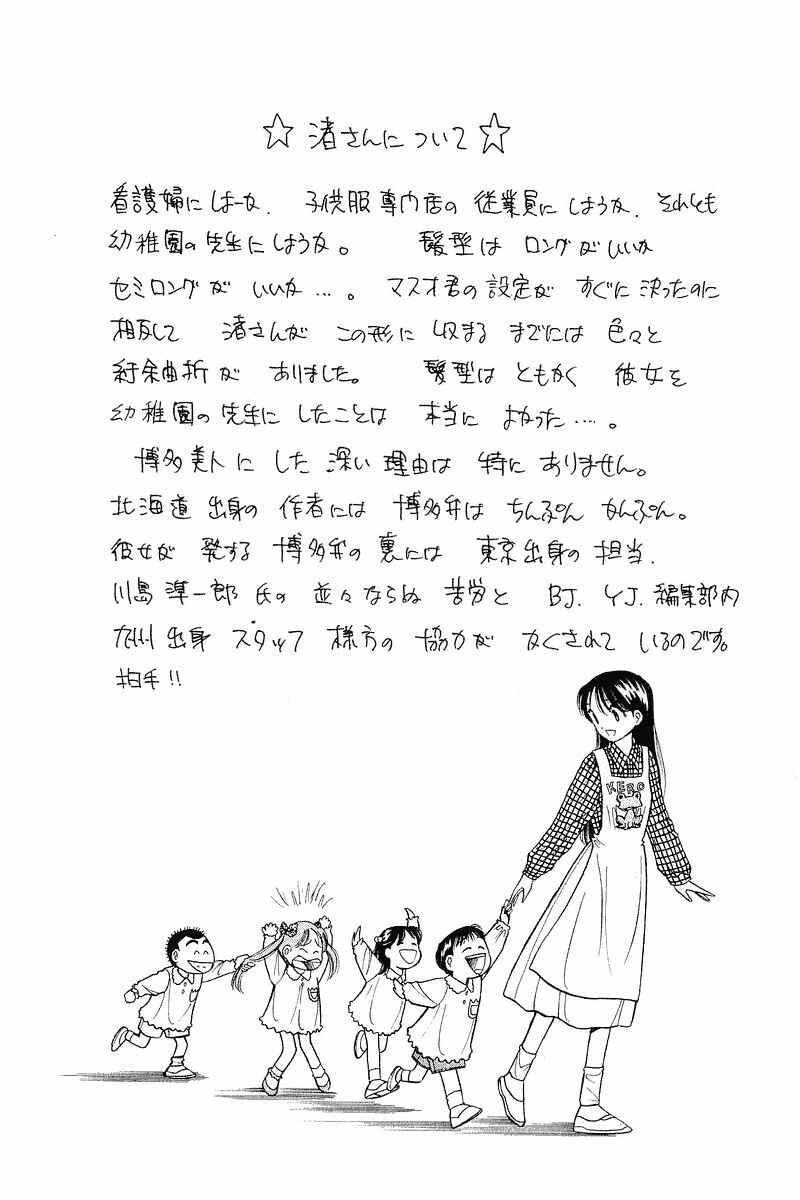 ☆ 渚さんについて ☆
看護婦にしよーか、 子供服専門店の 従業員に しようか、それとも
幼稚園の先生にしようか。 髪型は ロングがいいか
セミロングが いいか…。 マスオ君の設定が すぐに決ったのに
相反して 渚さんが この形に 収まる までには 色々と
紆余曲折が ありました。 髪型は ともかく 彼女を
幼稚園の先生に したことは 本当に よかった…。
博多美人に した 深い 理由は 特に ありません。
北海道 出身の 作者には 博多弁は ちんぷん かんぷん。
彼女が 発する 博多弁の 裏には 東京出身の 担当、
川島 準一郎 氏の 並々ならぬ 苦労と BJ. YJ. 編集部内
九州 出身 スタッフ 様方の 協力が かくされて いるのです。
拍手!!
KERO